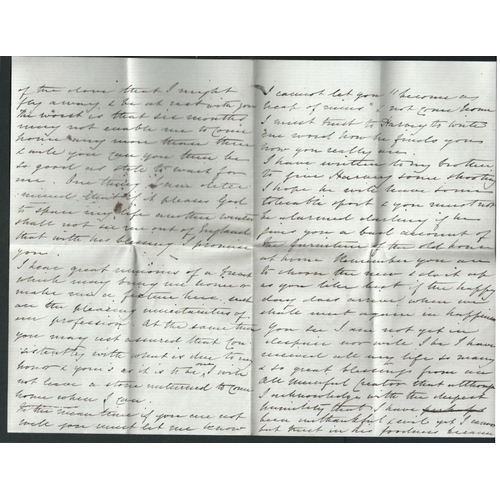 of the dove that I might
fly away, & be at rest with you
The worst is that six months
may not enable me to come
home any more than three
& will you can you then be
so good as to wait for
me. One thing I am deter
mined that if it pleases God
to spare my life another winter
shall not see me out of England
that with his blessing I promise
you.
I hear great rumours of a
which may bring me home &
make me a fixture here, such
are the pleasing uncertainties of
our profession. At the same time
you may rest assured that con
sistently with what is due to my
honor & yours as it is to be, I will
not leave a stone unturned to come
home when I can.
In the mean time if you are not
well you must let me know
I cannot let you "become a
heap of ruins" & not come home
I must trust to Harvey to write
one word how he finds you
how you really are.
I have written to my brother
to give Harvey some shooting
I hope he will have some
tolerable sport & you must not
be alarmed darling if he
gives you a bad account of
the furniture of the old house
at home. Remember you are
to choose the new & do it up
as you like best if the happy
day does arrive when we
shall meet again in happiness
You see I am not yet in
despair nor will I be I have
received all my life so many
& so great blessings from our
All Merciful Creator that although
I acknowledge with the deepest
humility that I have
been unthankful & evil yet I cannot
but trust in his goodness because